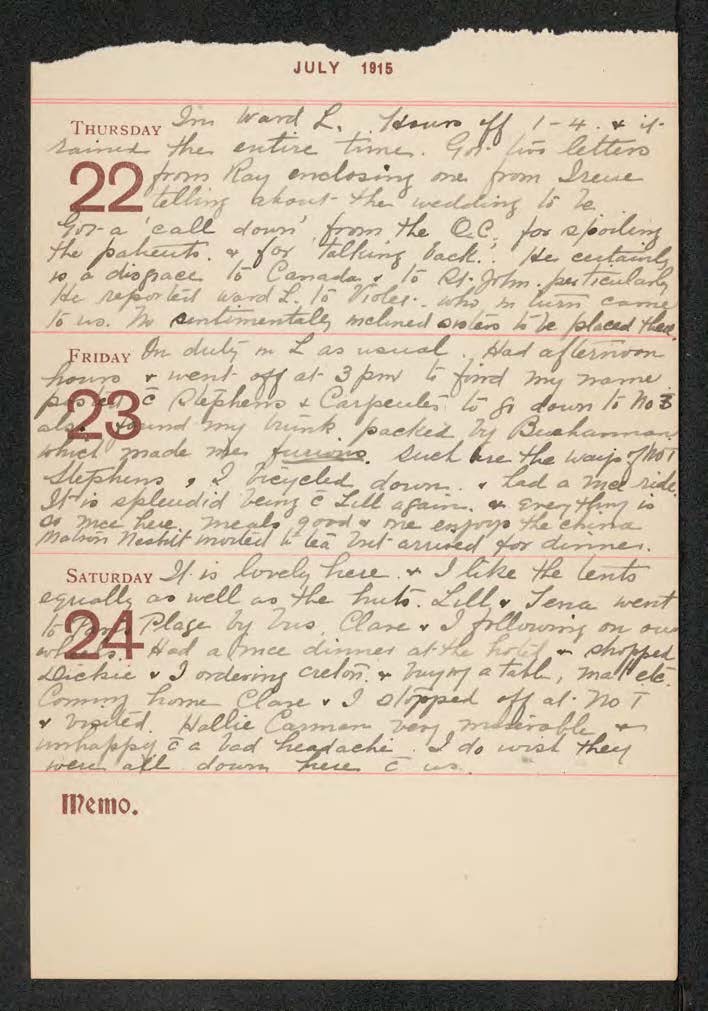 JULY 1915
THURSDAY In Ward L. Hours off 1-4. & it
rained the entire time. Got two letters
22 from Ray enclosing one from Irene
telling about the wedding to be
Got a 'call down' from the O.C. for spoiling
the patients. & for 'talking back'. He certainly
is a disgrace to Canada & to St. John particularly
He reported ward L. to Violet. who in turn came
to us. No sentimentally inclined sisters to be placed there.
FRIDAY On duty in L as usual. Had afternoon
hours & went off at 3 pm to find my name
23 posted c̄ Stephens & Carpenter to go down to No 3
also found my trunk packed by Buchannan
which made me furious. Such are the ways of No 1
Stephens & I bicycled down. & had a nice ride.
It is splendid being c̄ Lill again. & everything is
so nice here. meals good & one enjoys the china
Matron Nesbit invited to tea but arrived for dinner.
SATURDAY It is lovely here. & I like the tents
equally as well as the huts. Lill & Tena went
24 to Paris Plage by bus, Clare & I following on our
wheels. Had a nice dinner at the hotel & shopped
Dickie & I ordering creton. & buying a table, mat etc.
Coming home Clare & I stopped off at No 1
& visited. Hallie Carman very miserable &
unhappy c̄ a bad headache. I do wish they
were all down here c̄ us.
Memo.